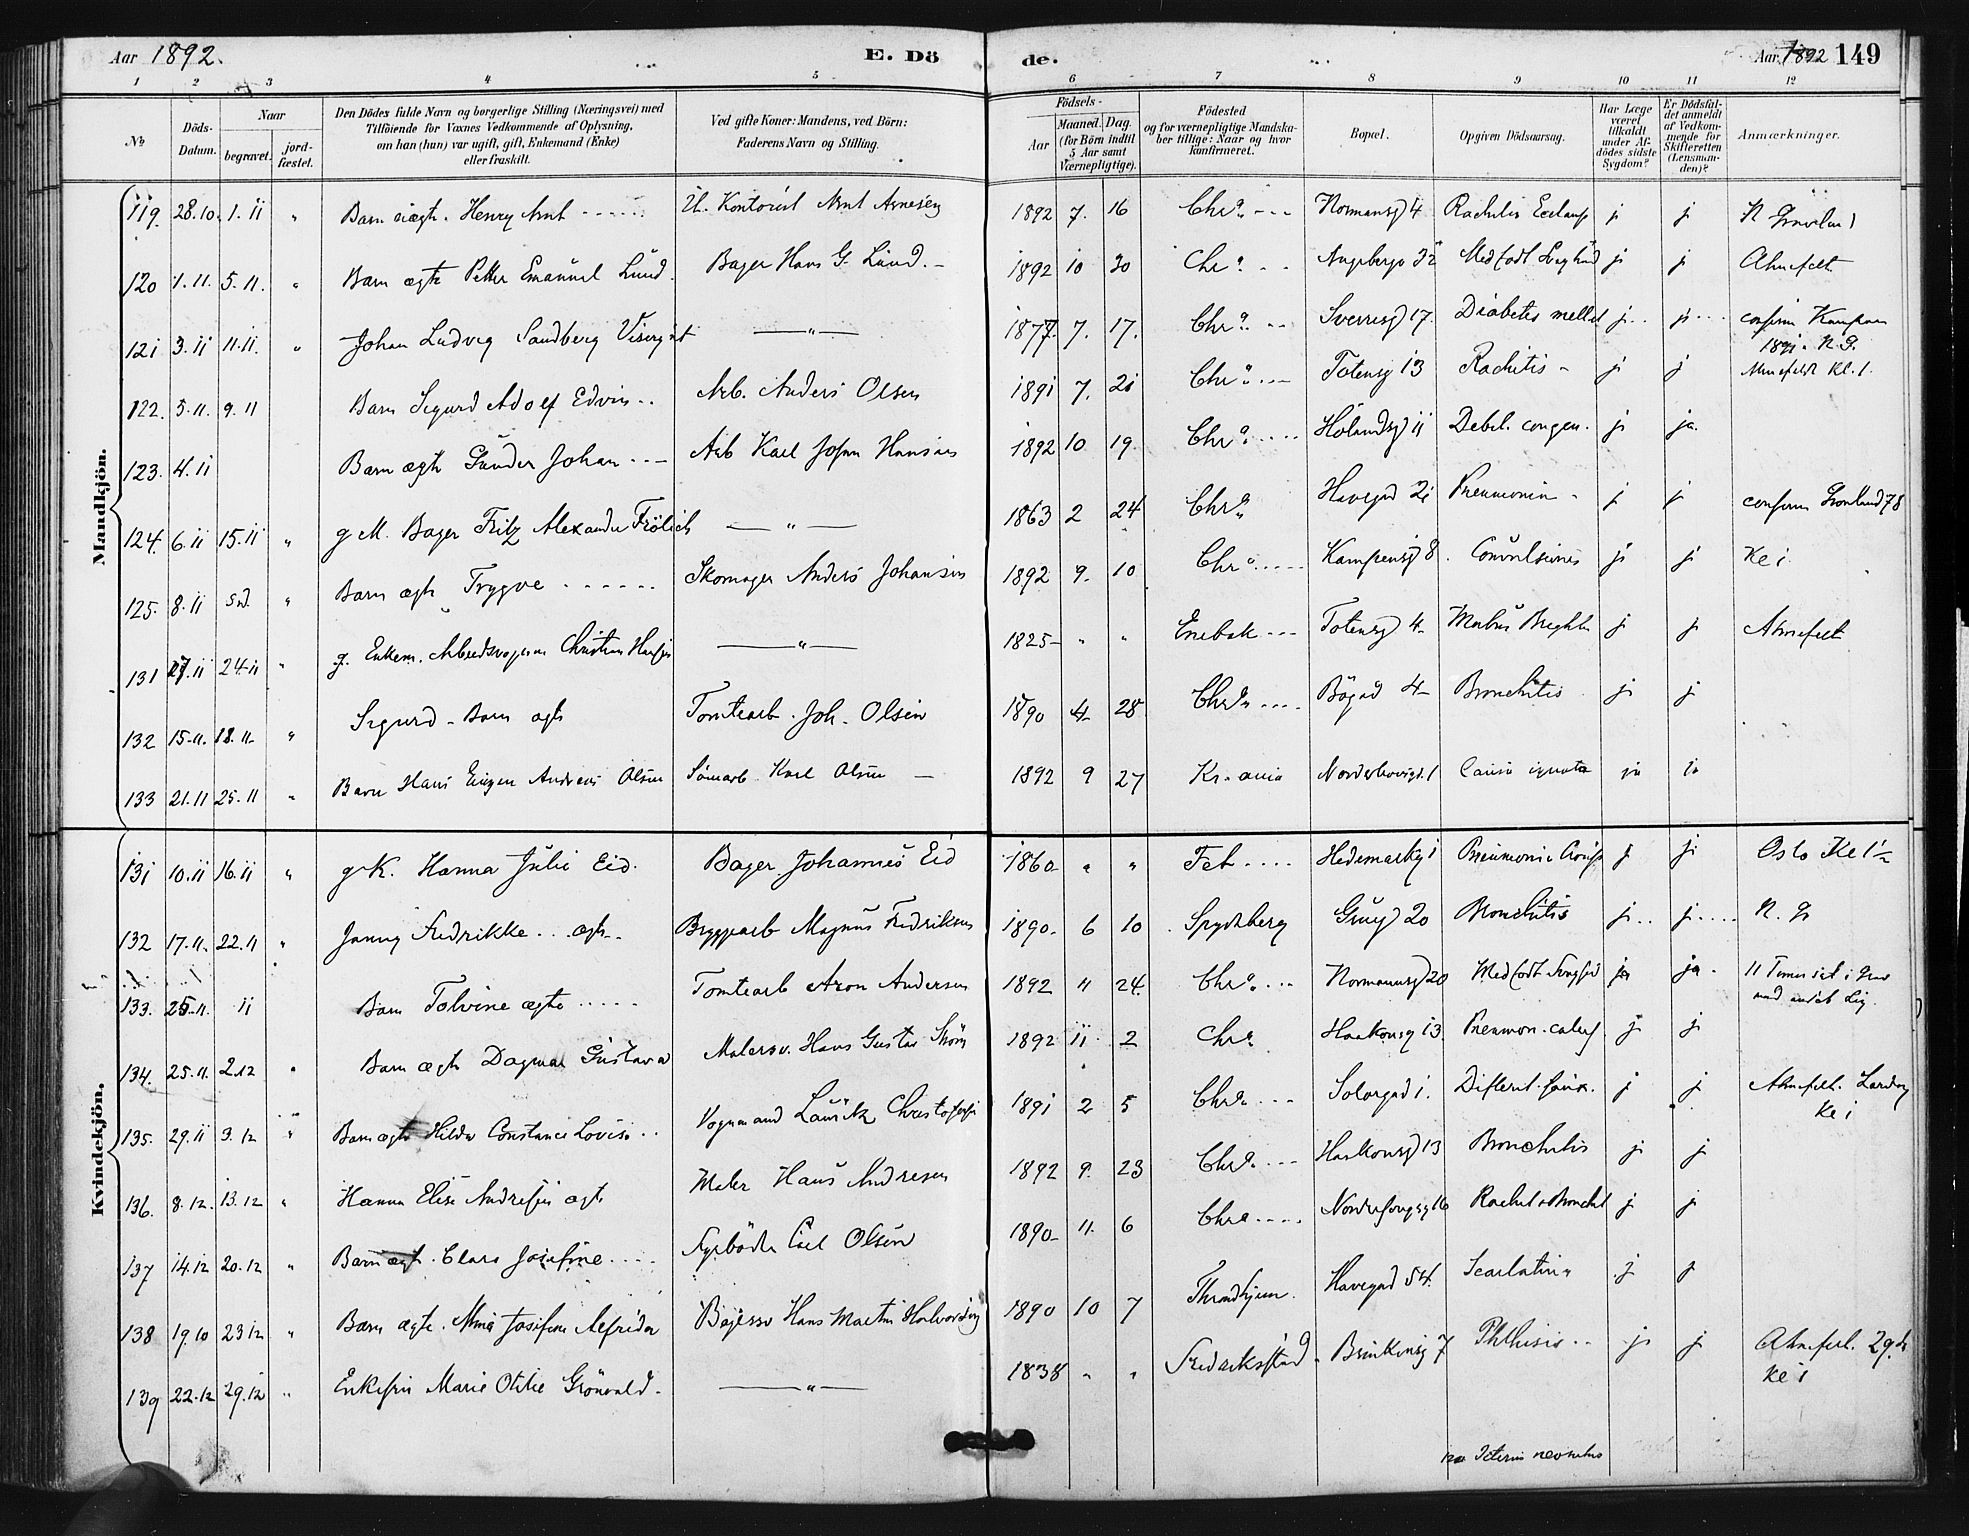 Aar 1892. E. Dö de. Aar 1892 149
1 2 3 4 5 6 7 8 9 10 11 12
No
Döds-Datum.
Naar
begravet.
jord-fæstet.
Den Dödes fulde Navn og borgerlige Stilling (Næringsvei) med
Tilföiende for Voxnes Vedkommende af Oplysning,
om han (hun) var ugift, gift, Enkemand (Enke)
eller fraskilt.
Ved gifte Koner: Mandens, ved Börn:
Faderens Navn og Stilling.
Födsels-
Aar
Maaned. Dag.
(for Börn indtil
5 Aar samt
Værnepligtige).
Födested
og for værnepligtige Mandska-
ber tillige: Naar og hvor
konfirmeret.
Bopæl.
Opgiven Dödsaarsag.
Har Læge
været
tilkaldt
under Af-
dödes sidste
Sygdom?
Er Dödsfal-
det anmeldt
af Vedkom-
mende for
Skifteretten
(Lensman-
den)?
Anmærkninger.
Mandkjön.
119. 28.10. 1.11 " Barn uægte. Henry Arnt - - - U. Kontorist Arnt Arnesen 1892 7. 16 Chra. - - Normansg 4 Rachitis j j N Grønland
120 1.11. 5.11. " Barn ægte Petter Emanuel Lund. Bager Hans G. Lund. - 1892 10 30 Chra. - - 32 Medfødt j j Ahnefelt
121 3.11 11.11. " Johan Ludvig Sandberg Visergut — " — 1877. 7. 17. Chra. - - Sverresg 17. Diabetes mellit j.. j... confirm Kampen
1891. N.G.
122. 5.11. 9.11 Barn Sigurd Adolf Edvin.. Arb. Anders Olsen 1891 7. 21 Chra. - - Totensg 13 Rachitis - j j Ahnefeldt Kl. 1.
123. 4.11 Barn ægte Gunder Johan - - - Arb Karl Johan Hansen 1892 10 19. Chra. - - - Hölandsg 11 Debil. congen. j ja.
124. 6.11 15.11 " g M. Bager Fritz Alexander Frölich — " — 1863 2 24 Chra. Havegad 21 Pneumonia - j j confirm Grønland 78
125. 8.11 sd. " Barn ægte Trygve - - - - Skomager Anders Johansen 1892 9. 10 Chra. - - - Kampensg 8. Convulsiones j j Kl 1
131 27.11 24.11 " g. Enkem. Arbeidsvognm Christian Hansen — " — 1825- " " Enebak - - - Totensg 4- Morbus Brightii j j Ahnefelt
132 15.11. 18.11. " Sigurd - Barn ægte Tomtearb. Joh. Olsen 1890 4- 28 Chra. - - - Bögad 4- Bronchitis j j
133 21.11 25.11 " Barn Hans Eugen Andreas Olsen Karl Olsen — 1892 9 27 Kr.ania Norderhovsgd. 1 Causa ignota ja ja
Kvindekjön.
131 10.11 16.11 " g K. Hanna Julie Eid. Bager Johannes Eid 1860- " " Fet - - - - Hedemarksg 1 Pneumonia Croup j j Oslo Kl 1½
132 17.11. 22.11 " Jenny Fredrikke ... ægte. Bryggearb Magnus Fredriksen 1890. 6 10 . Spydeberg Grüng 20 Bronchitis j.. j.... N. G
133. 25.11. 11 Barn Tolvine ægte ..... Tomtearb Aron Andersen 1892 11 24. Chra. ... Normannsg 20 Medfødt ja ja. 11 Timer
134. 25.11. 2.12 " Barn ægte Dagmar Gustava Malersv. Hans Gustav 1892 11. 2 Chra Haakonsg 13. Pneumon. catarh j j
135. 29.11 3.12 " Barn ægte Hilda Constance Lovise.. Vognmand Lauritz Christofersen 1891 2 5 Chra. - - Solorgad 1. Difterit. fauc. j j Ahnefelt.
Kl 1
136. 8.12. 13.12 " Hanna Elise Andresen ægte Maler Hans Andresen 1892 9. 23 Chra. - - - Haakonsg 13 Bronchitis j j
137 14.12 20.12 " Barn ægte. Clara Josefine ... Fyrbøder Carl Olsen 1890- 11. 6 Chra - - - - 16 Rachit & Bronchit j j
138 19.10 23 12 " Barn ægte. Josefine Alfrida Hans Martin Halvorsen 1890 10 7 Throndhjem. Havegad 54. Scarlatina j j
139 22.12 29.12 " Enkefru Marie Otilie Grönvold. — " — 1838 " " Fredriksstad. Brinkensg 7 Phthisis .. j j Ahnefelt. 29.
Kl 1
120 Icterus neonatus